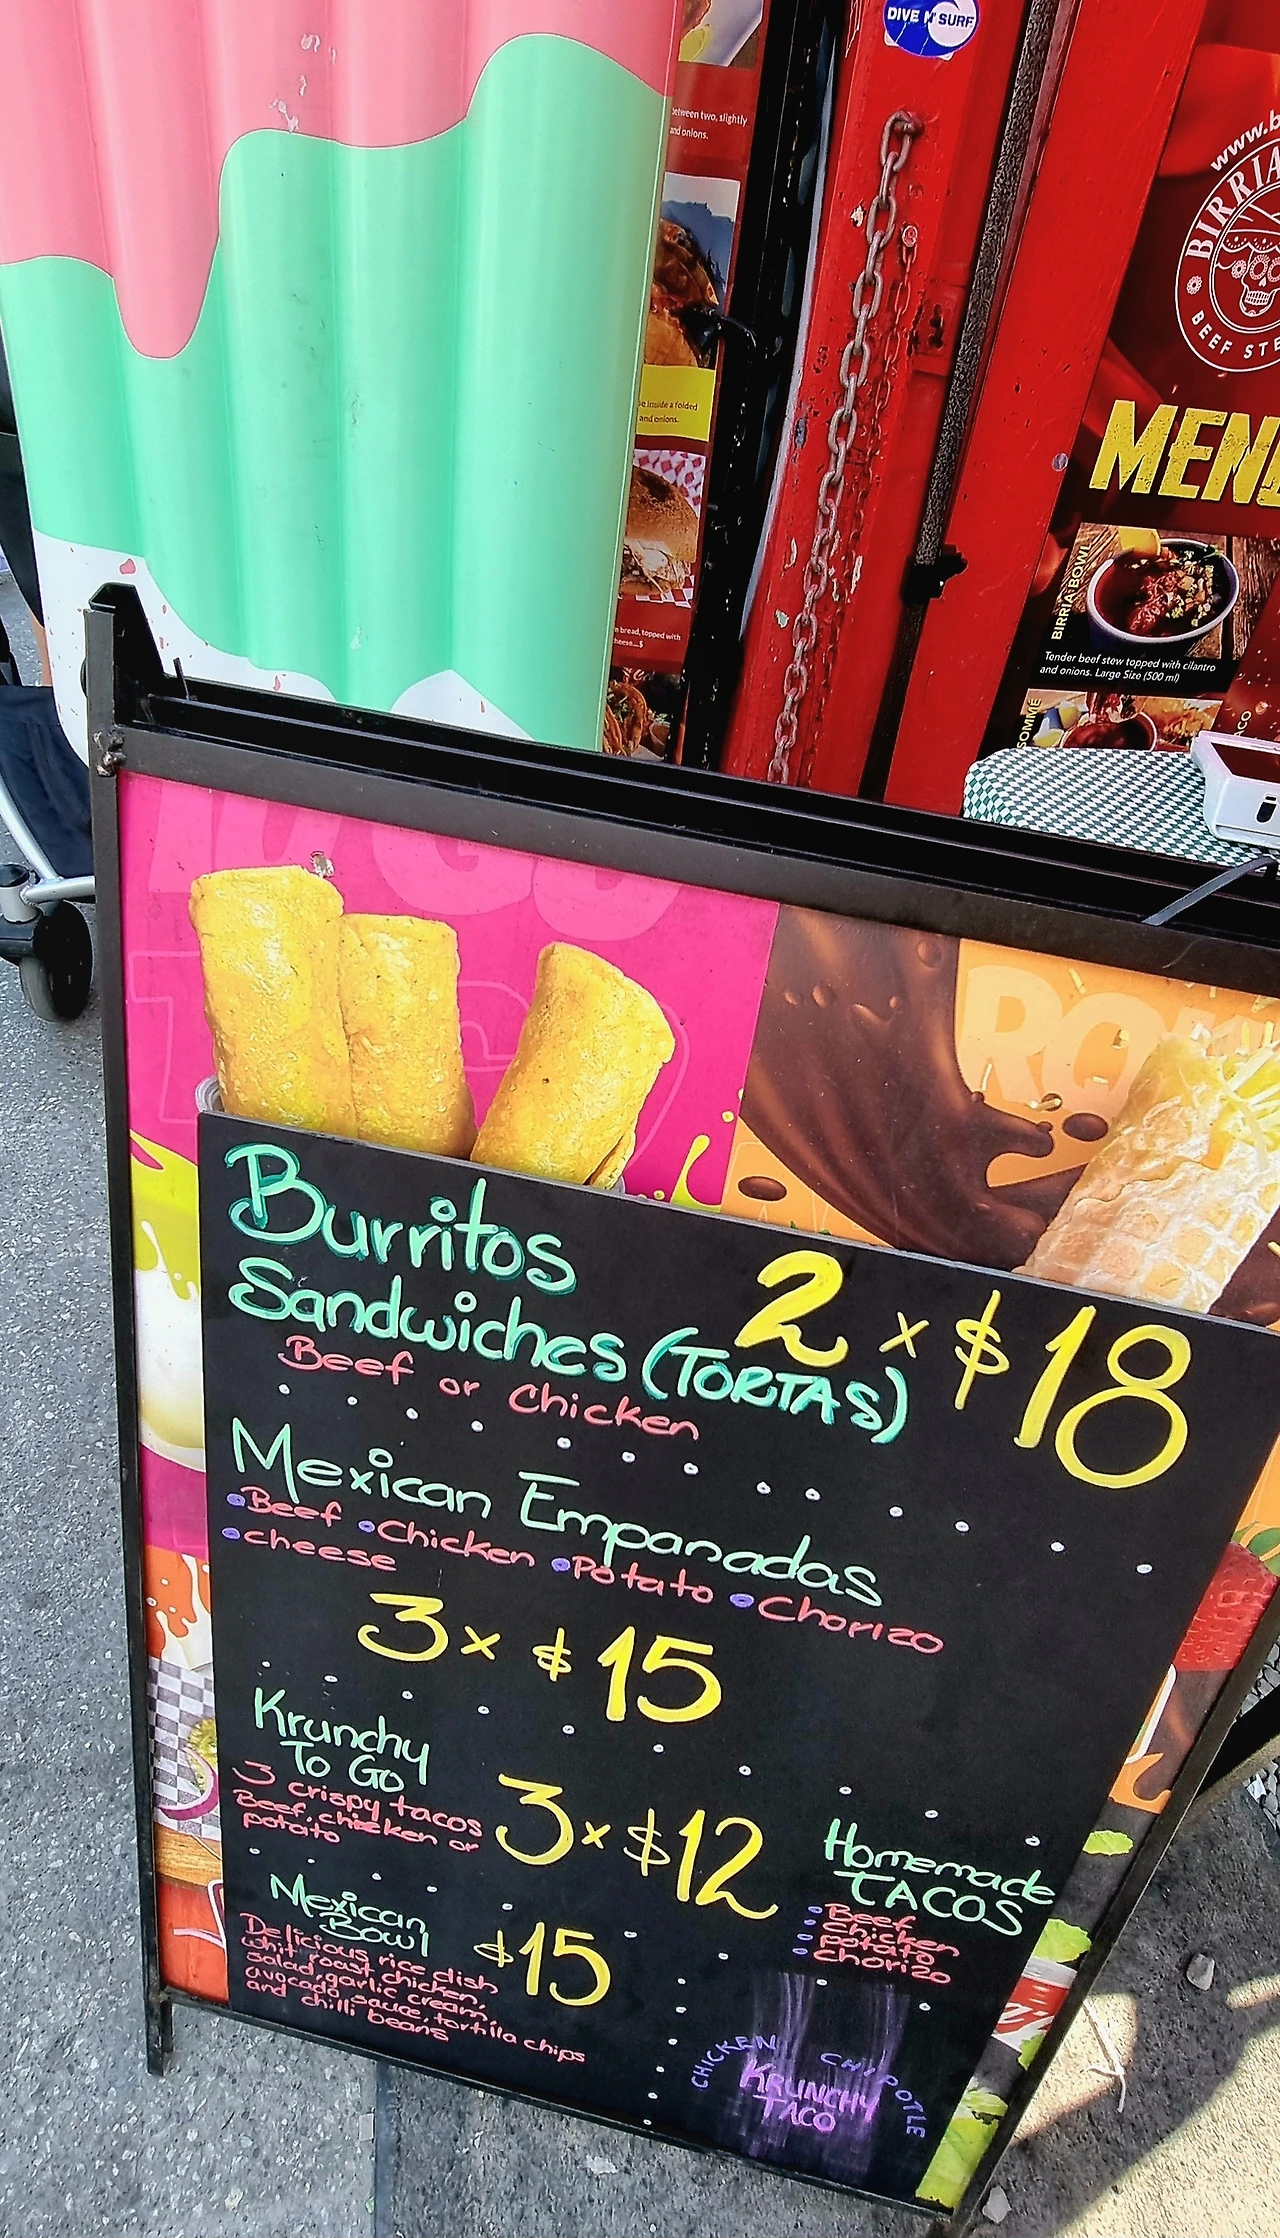 DIVE N' SURF
between two, slightly
and onions.
www.b
BIRRIA
BEEF STE
MEN
inside a folded
and onions.
BIRRIA BOWL
bread, topped with
Tender beef stew topped with cilantro
and onions. Large Size (500 ml)
Burritos
Sandwiches (TORTAS)
2 x $18
Beef or Chicken
Mexican Empanadas
Beef Chicken Potato Chorizo
cheese
3 x $15
Krunchy
To Go
3 crispy tacos
Beef, chicken or
potato
3 x $12
Homemade
TACOS
Beef
chicken
potato
chorizo
Mexican
Bowl
$15
Delicious rice dish
whit roast chicken,
salad, garlic cream,
avocado sauce, tortilla chips
and chilli beans
CHICKEN CHIPOTLE
KRUNCHY
TACO